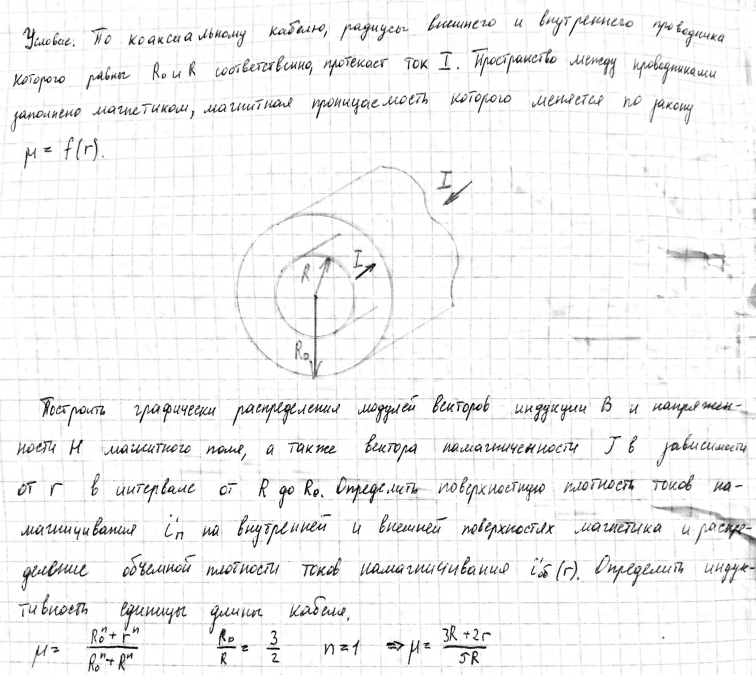 Условие. По коаксиальному кабелю, радиусы внешнего и внутреннего проводника
которого равны R₀ и R соответственно, протекает ток I. Пространство между проводниками
заполнено магнетиком, магнитная проницаемость которого меняется по закону
μ = f(r).
I
R
I
R₀
Построить графически распределения модулей векторов индукции B и напряжен-
ности H магнитного поля, а также вектора намагниченности J в зависимости
от r в интервале от R до R₀. Определить поверхностную плотность токов на-
магничивания i'п на внутренней и внешней поверхностях магнетика и распре-
деление объемной плотности токов намагничивания i'об(r). Определить индук-
тивность единицы длины кабеля.
μ = (R₀ⁿ + rⁿ)/(R₀ⁿ + Rⁿ) R₀/R = 3/2 n = 1 ⇒ μ = (3R + 2r)/5R